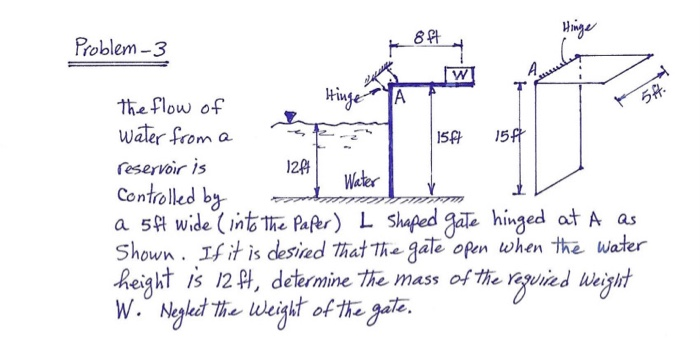 Problem-3
8 ft
Hinge
W
A
Hinge
A
5 ft.
15 ft
15 ft
12 ft
Water
The flow of
Water from a
reservoir is
Controlled by
a 5ft wide (into the Paper) L Shaped gate hinged at A as
Shown. If it is desired that the gate open when the water
height is 12 ft, determine the mass of the required Weight
W. Neglect the Weight of the gate.